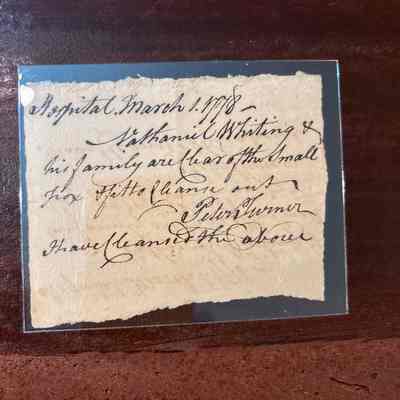 Hospital, March 1. 1778 –
Nathaniel Whiting &
his family are Clear of the Small
pox & fitt to Cleanse out
Peter Turner
I have Cleansed the above